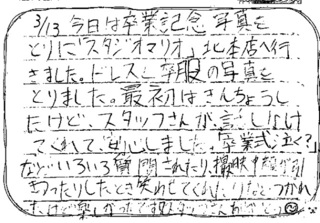 3/13 今日は卒業記念写真を
とりに「スタジオマリオ」北本店へ行
きました。ドレスと 服の写真を
とりました。最初はきんちょうし
たけど、スタッフさんが話しかけ
てくれて、安心しました。卒業式泣く?
などいろいろ質問されたり、撮影中
きつかったりしたとき笑わせてくれ つかれ
たけど楽しかったです。